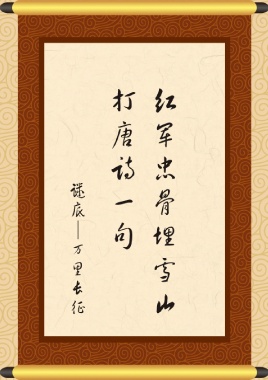 红军忠骨埋雪山
打唐诗一句
谜底——万里长征